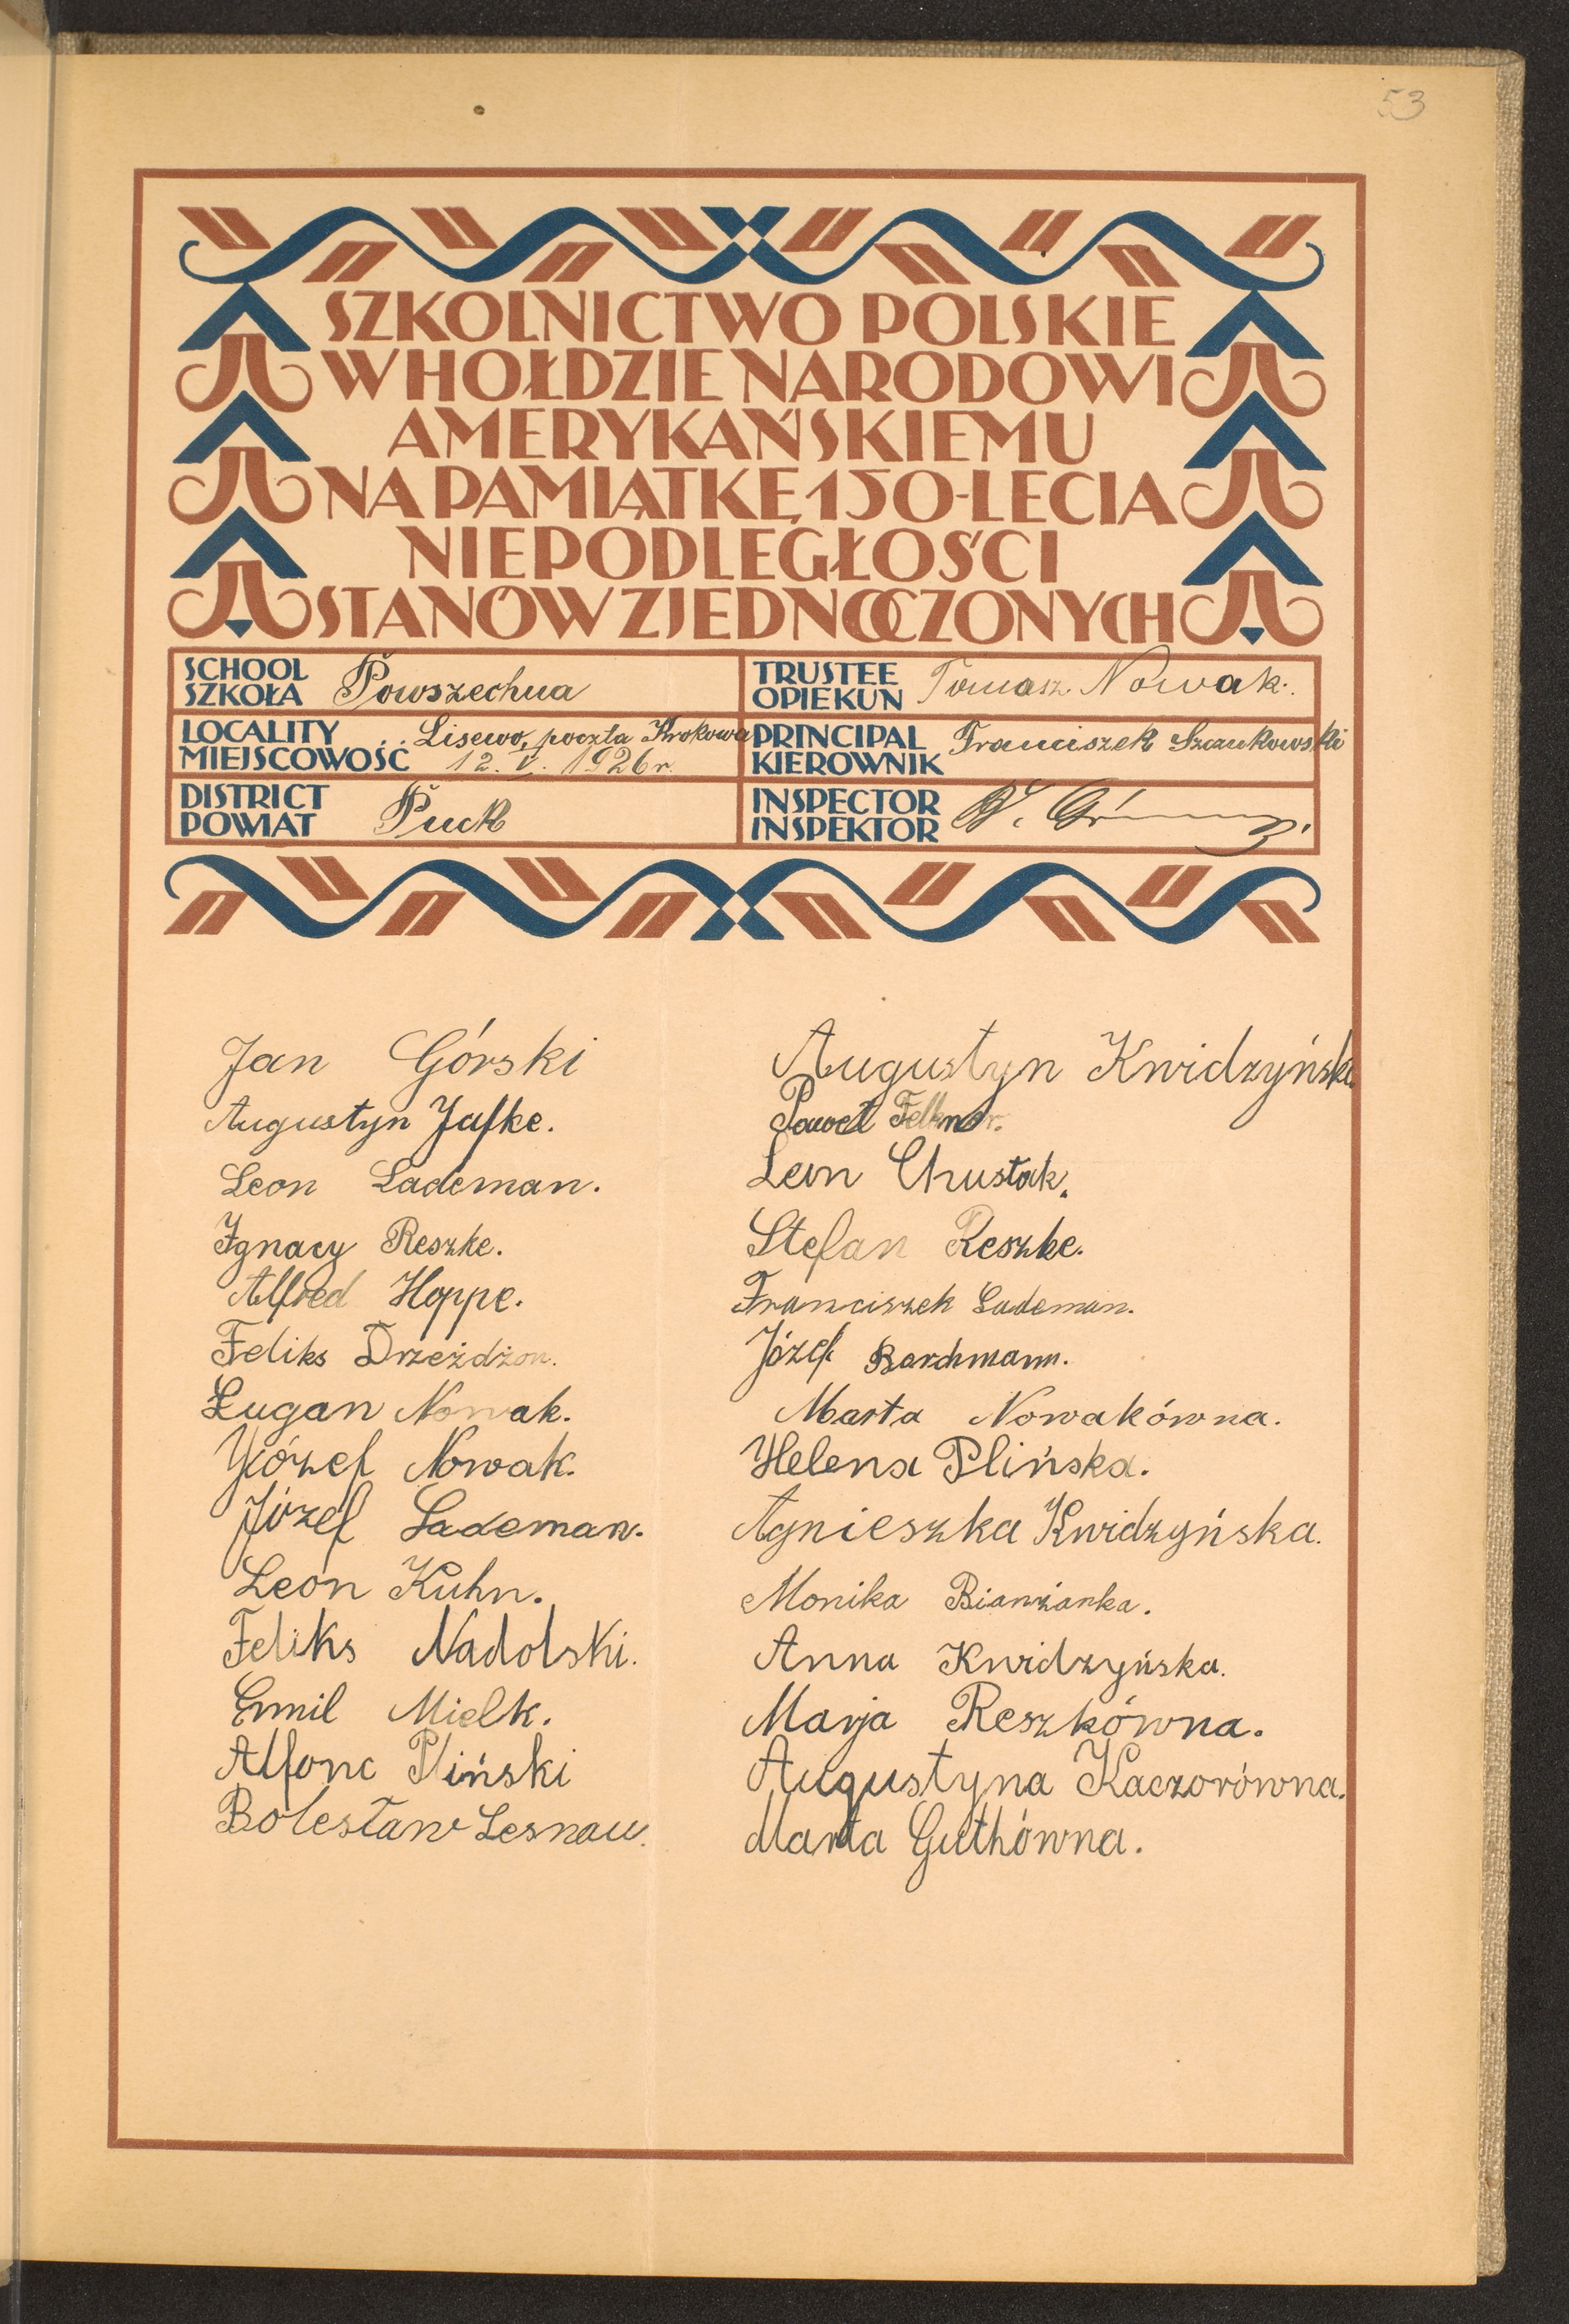 53
SZKOLNICTWO POLSKIE
W HOŁDZIE NARODOWI
AMERYKAŃSKIEMU
NA PAMIĄTKĘ 150-LECIA
NIEPODLEGŁOŚCI
STANÓW ZJEDNOCZONYCH
SCHOOL
SZKOŁA
Powszechna
TRUSTEE
OPIEKUN
Tomasz Nowak.
LOCALITY
MIEJSCOWOŚĆ
Lisewo, poczta Krokowa
12. V. 1926 r.
PRINCIPAL
KIEROWNIK
Franciszek Szczukowski
DISTRICT
POWIAT
Puck
INSPECTOR
INSPEKTOR
Jan Górski
Augustyn Jafke.
Leon Lademan.
Ignacy Reszke.
Alfred Hoppe.
Feliks Drzeżdżon.
Eugan Nowak.
Józef Nowak.
Józef Lademan.
Leon Kuhn.
Feliks Nadolski.
Emil Mielk.
Alfonc Pliński
Bolesław Lesnau.
Augustyn Kwidzyński
Paweł Felkner.
Leon Chustak.
Stefan Reszke.
Franciszek Lademan.
Józef Barchmann.
Marta Nowakówna.
Helena Plińska.
Agnieszka Kwidzyńska.
Monika Bianżanka.
Anna Kwidzyńska.
Marja Reszkówna.
Augustyna Kaczorówna.
Marta Guthówna.